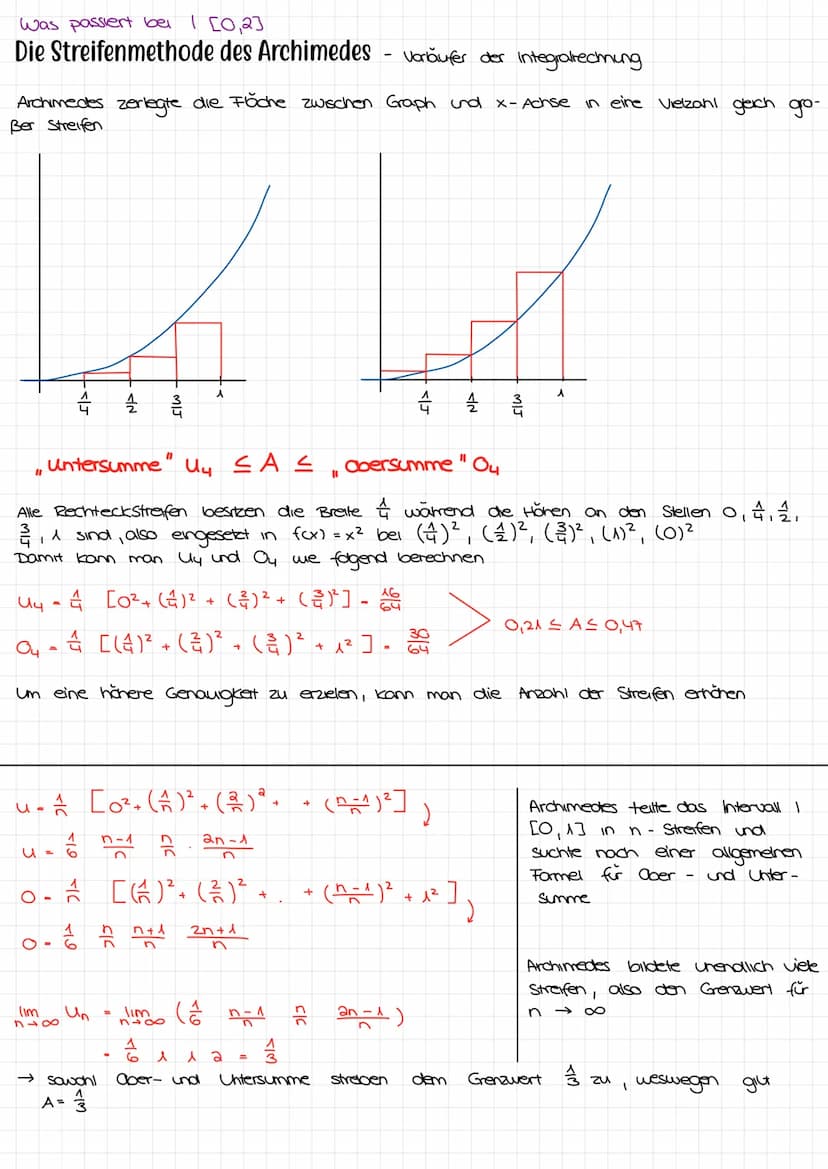 Was passiert bei I [0,2]
Die Streifenmethode des Archimedes - Vorläufer der Integralrechnung
Archimedes zerlegte die Fläche zwischen Graph und x-Achse in eine Vielzahl gleich gro-
ßer Streifen
1/4 1/2 3/4 1
1/4 1/2 3/4 1
„Untersumme" U₄ ≤ A ≤ „Obersumme" O₄
Alle Rechteckstreifen besitzen die Breite 1/4 während die Höhen an den Stellen 0, 1/4, 1/2,
3/4, 1 sind, also eingesetzt in f(x) = x² bei (1/4)², (1/2)², (3/4)², (1)², (0)²
Damit kann man U₄ und O₄ wie folgend berechnen
U₄ = 1/4 [0² + (1/4)² + (2/4)² + (3/4)²] = 16/64
O₄ = 1/4 [(1/4)² + (2/4)² + (3/4)² + 1²] = 30/64
0,21 ≤ A ≤ 0,47
Um eine höhere Genauigkeit zu erzielen, kann man die Anzahl der Streifen erhöhen
U = 1/n [0² + (1/n)² + (2/n)² + + (n-1/n)²]
U = 1/6 n-1/n n/n · 2n-1/n
O = 1/n [(1/n)² + (2/n)² + . + (n-1/n)² + 1²]
O = 1/6 n/n n+1/n 2n+1/n
Archimedes teilte das Intervall I
[0,1] in n-Streifen und
suchte nach einer allgemeinen
Formel für Ober- und Unter-
summe
Archimedes bildete unendlich viele
Streifen, also den Grenzwert für
n → ∞
lim n→∞ Uₙ = lim n→∞ (1/6 n-1/n n/n 2n-1/n)
= 1/6 1 1 2 = 1/3
→ sowohl Ober- und Untersumme streben dem Grenzwert 1/3 zu, weswegen gilt
A = 1/3